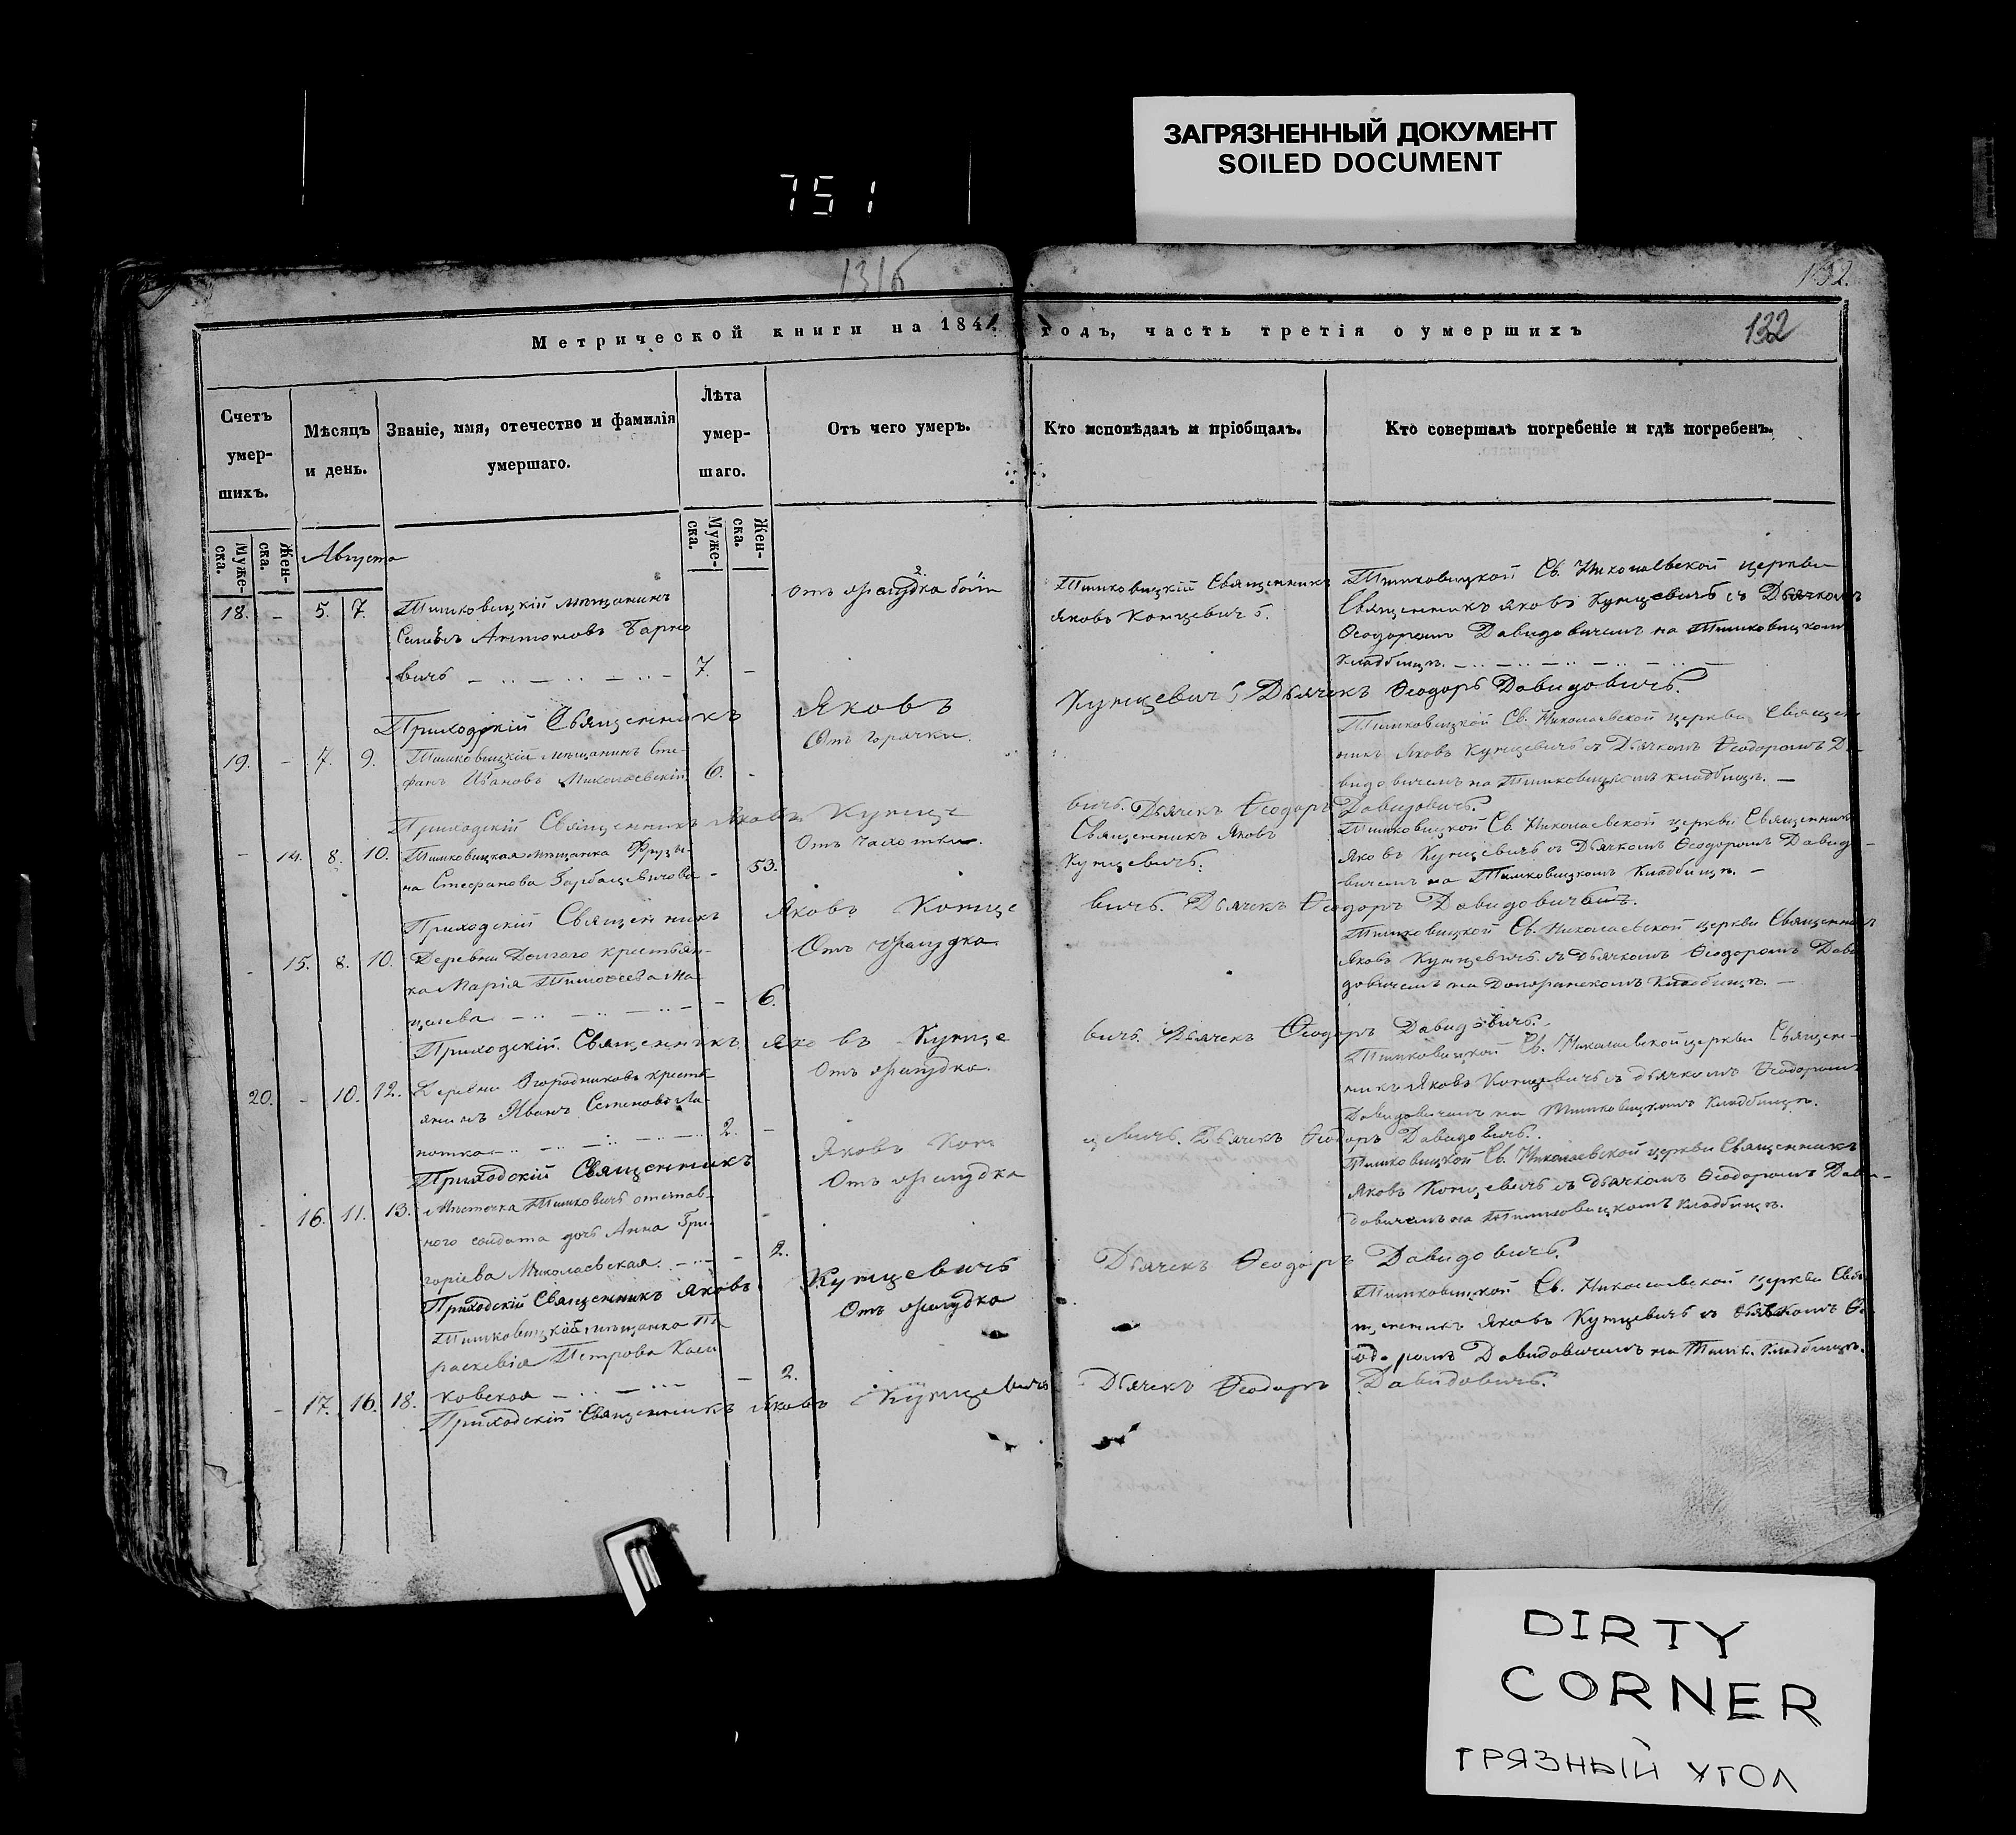 ЗАГРЯЗНЕННЫЙ ДОКУМЕНТ
SOILED DOCUMENT
751
132.
Метрической книги на 184 годъ, часть третія о умершихъ
132
Счетъ умер-шихъ.
Мѣсяцъ и день.
Званіе, имя, отечество и фамилія умершаго.
Лѣта умер-шаго.
Отъ чего умеръ.
Кто исповѣдалъ и пріобщалъ.
Кто совершалъ погребеніе и гдѣ погребенъ.
Муже-ска.
Жен-ска.
Августа
Муже-ска.
Жен-ска.
18. - 5. 7.
Тимковицкій мѣщанинъ
Антоновъ
вичъ
7. -
Тимковицкій Священникъ
Яковъ
Тимковицкой Св. Николаевской церкви
Священникъ Яковъ Купцевичъ съ Дьячкомъ
Ѳеодоромъ Давидовичемъ на Тимковицкомъ
Кладбищѣ.
Приходскій Священникъ Яковъ Купцевичъ, Дьячекъ Ѳеодоръ Давидовичъ.
19. - 7. 9.
Тимковицкій мѣщанинъ Сте-
фанъ Ивановъ Миколаевскій
6. -
Отъ горячки.
Тимковицкой Св. Николаевской церкви Священ-
никъ Яковъ Купцевичъ съ Дьячкомъ Ѳеодоромъ Да-
видовичемъ на Тимковицкомъ кладбищѣ.
Приходскій Священникъ Яковъ Купцевичъ. Дьячекъ Ѳеодоръ Давидовичъ.
- 14. 8. 10.
Тимковицкая мѣщанка
на Стефанова
- 53.
Отъ чахотки.
Священникъ Яковъ
Купцевичъ.
Тимковицкой Св. Николаевской церкви Священникъ
Яковъ Купцевичъ съ Дьячкомъ Ѳеодоромъ Давидо-
вичемъ на Тимковицкомъ Кладбищѣ.
Приходскій Священникъ Яковъ Купцевичъ. Дьячекъ Ѳеодоръ Давидовичъ.
- 15. 8. 10.
Деревни Долгаго крестьян-
ка Марія Тимоѳеева
- 6.
Отъ желудка
Тимковицкой Св. Николаевской церкви Священникъ
Яковъ Купцевичъ съ дьячкомъ Ѳеодоромъ Дави-
довичемъ на Кладбищѣ.
Приходскій Священникъ Яковъ Купцевичъ. Дьячекъ Ѳеодоръ Давидовичъ.
20. - 10. 12.
Деревни Огородниковъ кресть-
янинъ Иванъ
2. -
Отъ желудка.
Тимковицкой Св. Николаевской церкви Священ-
никъ Яковъ Купцевичъ съ дьячкомъ Ѳеодоромъ
Давидовичемъ на Тимковицкомъ Кладбищѣ.
Приходскій Священникъ Яковъ Купцевичъ. Дьячекъ Ѳеодоръ Давидовичъ.
- 16. 11. 13.
Мѣстечка Тимковичъ отстав-
ного солдата дочь Анна Гри-
горіева Миколаевская.
- 2.
Отъ желудка
Тимковицкой Св. Николаевской церкви Священникъ
Яковъ Купцевичъ съ дьячкомъ Ѳеодоромъ Дави-
довичемъ на Тимковицкомъ Кладбищѣ.
Приходскій Священникъ Яковъ Купцевичъ Дьячекъ Ѳеодоръ Давидовичъ.
- 17. 16. 18.
Тимковицкая мѣщанка Па-
раскевія Петрова
ковская
- 2.
Отъ желудка
Тимковицкой Св. Николаевской церкви Свя-
щенникъ Яковъ Купцевичъ съ дьячкомъ Ѳе-
одоромъ Давидовичемъ на Тимк. Кладбищѣ.
Приходскій Священникъ Яковъ Купцевичъ Дьячекъ Ѳеодоръ Давидовичъ.
DIRTY
CORNER
ГРЯЗНЫЙ УГОЛ